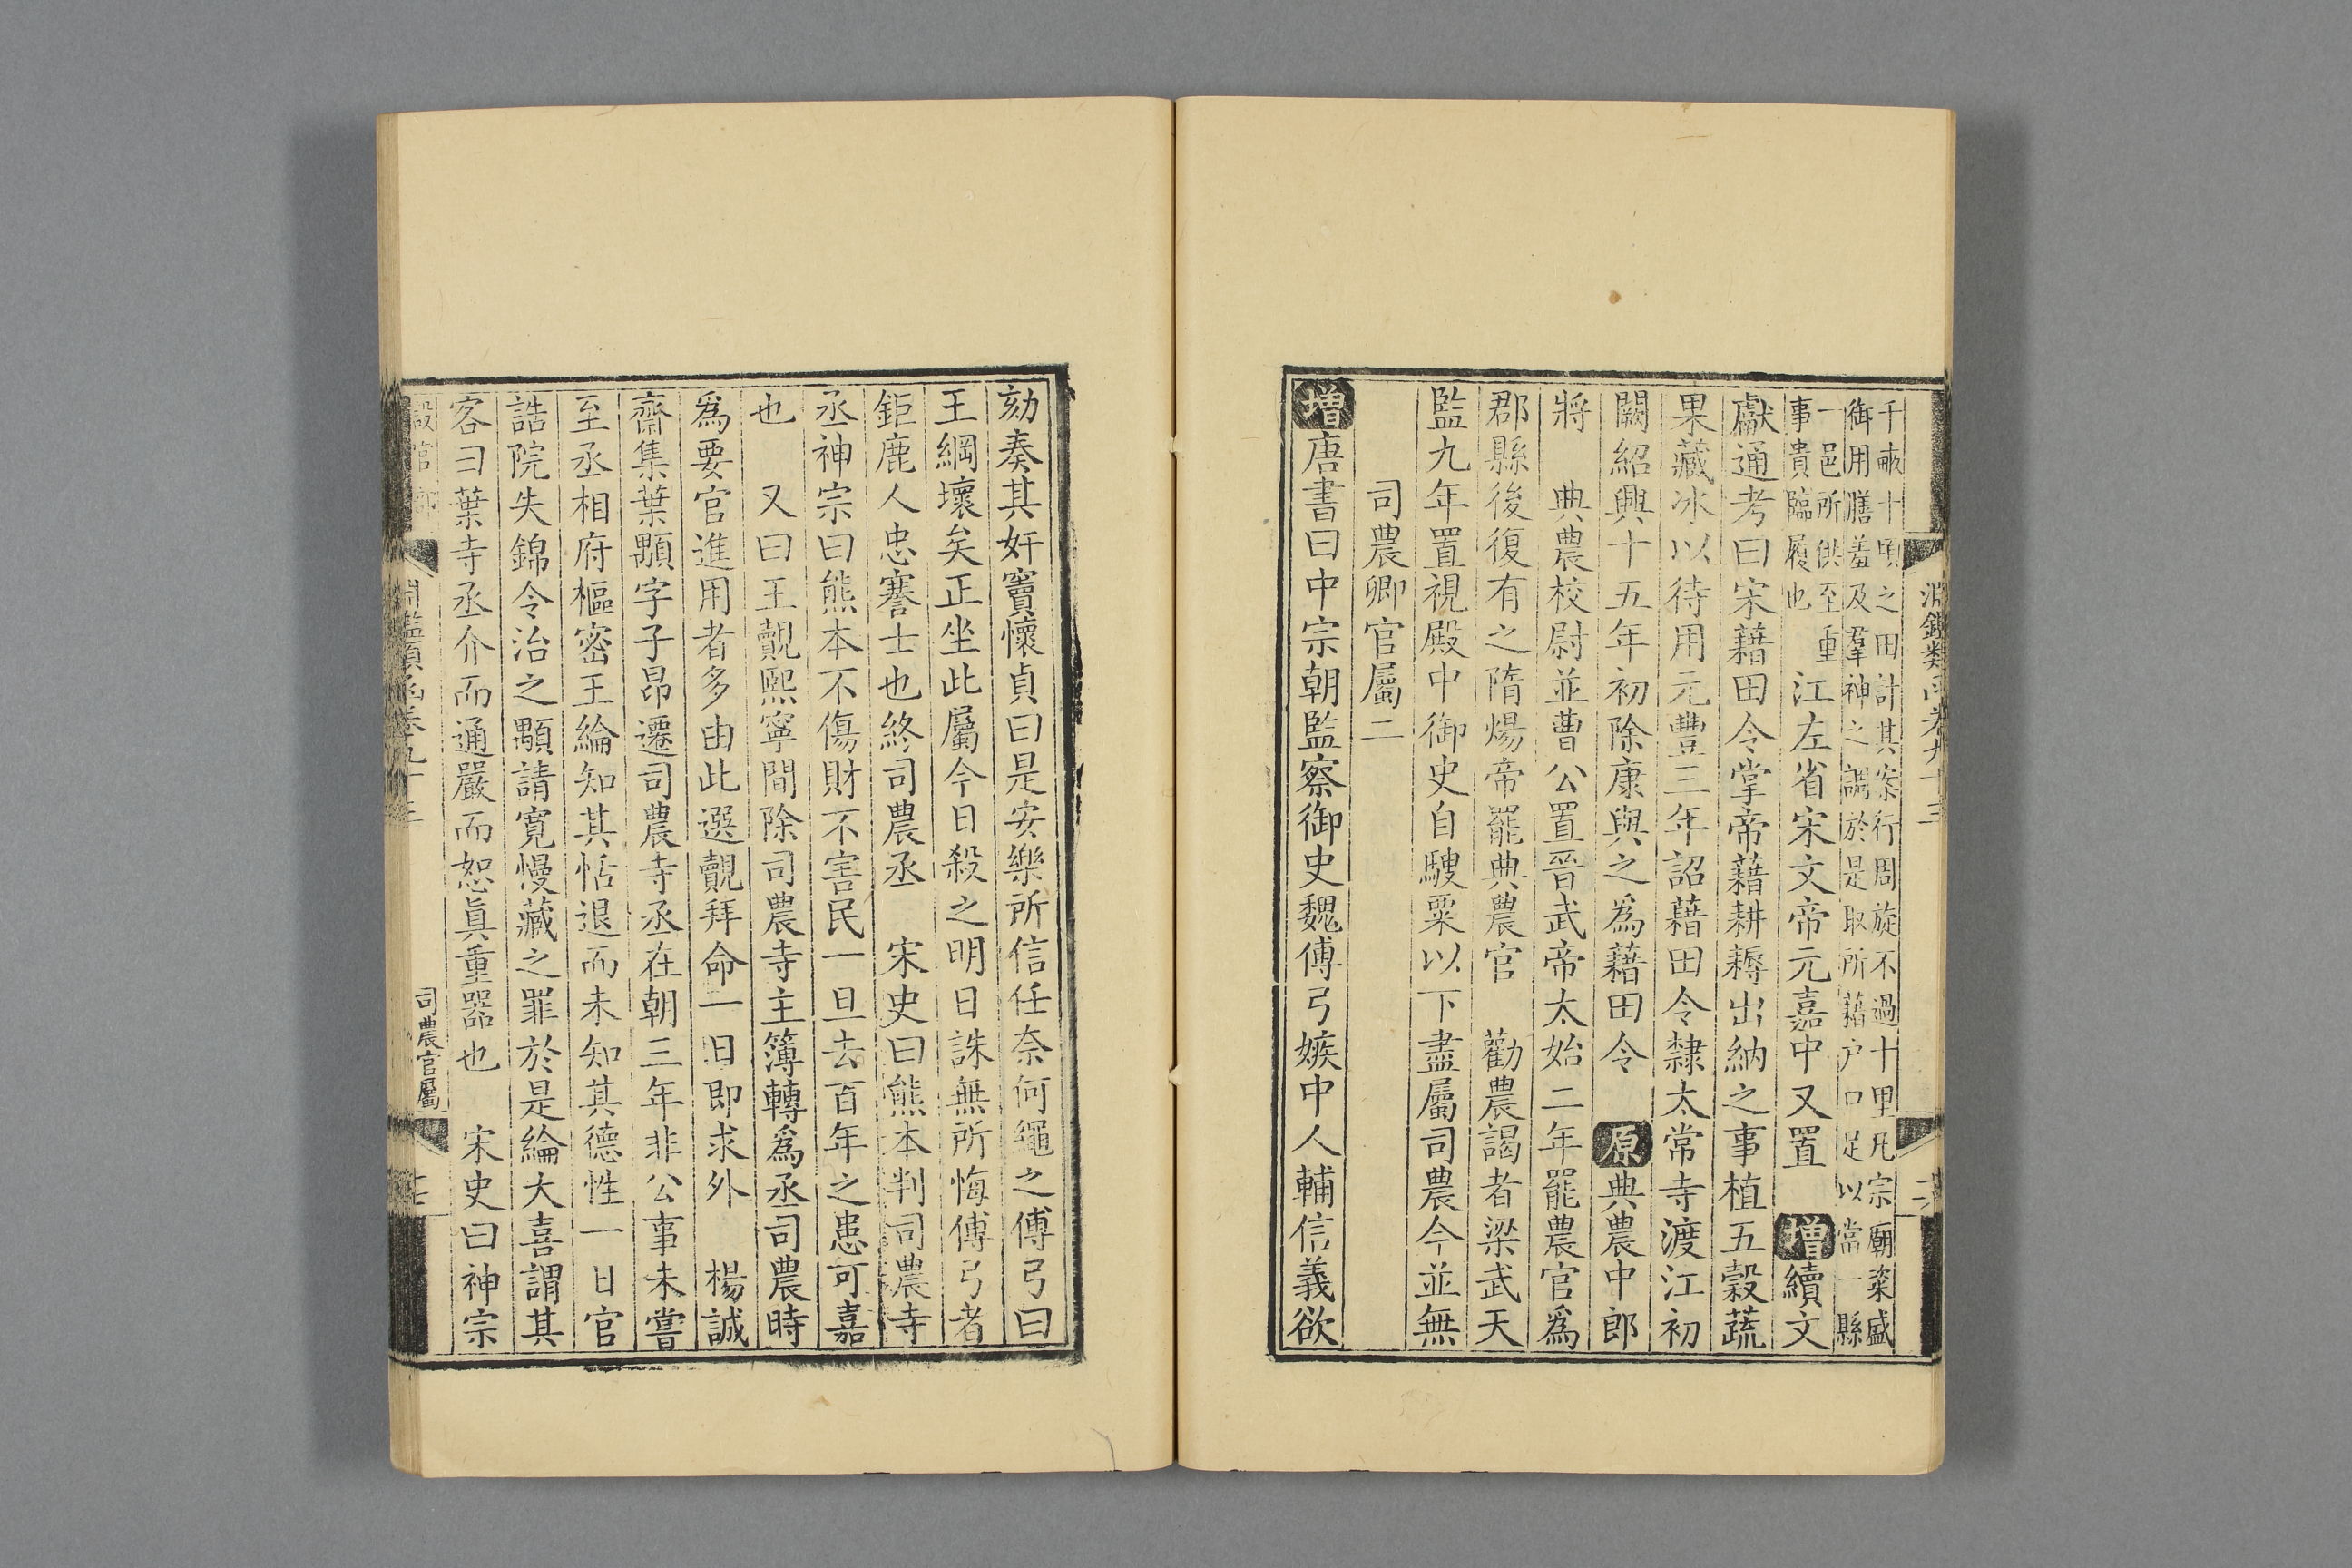 千畮十頃之田計其案行周旋不過十里凡宗廟粢盛
御用膳羞及羣神之調於是取所藉户口足以當一縣
一邑所供至重
事貴臨履也
江左省宋文帝元嘉中又置　增續文
獻通考曰宋藉田令掌帝藉耕耨出納之事植五穀蔬
果藏冰以待用元豐三年詔藉田令隸太常寺渡江初
闕紹興十五年初除康與之為藉田令　原典農中郎
將　典農校尉並曹公置晉武帝太始二年罷農官爲
郡縣後復有之隋煬帝罷典農官　勸農謁者梁武天
監九年置視殿中御史自騪粟以下盡屬司農今並無
司農卿官屬二
增唐書曰中宗朝監察御史魏傳弓嫉中人輔信義欲
劾奏其奸竇懷貞曰是安樂所信任奈何繩之傳弓曰
王綱壞矣正坐此屬今日殺之明日誅無所悔傳弓者
鉅鹿人忠謇士也終司農丞　宋史曰熊本判司農寺
丞神宗曰熊本不傷財不害民一旦去百年之患可嘉
也　又曰王覿熙寧間除司農寺主簿轉爲丞司農時
爲要官進用者多由此選覿拜命一日即求外　楊誠
齋集葉顒字子昂遷司農寺丞在朝三年非公事未嘗
至丞相府樞密王綸知其恬退而未知其德性一日官
誥院失錦令治之顒請寬慢藏之罪於是綸大喜謂其
客曰葉寺丞介而通嚴而恕眞重器也　宋史曰神宗
司農官屬